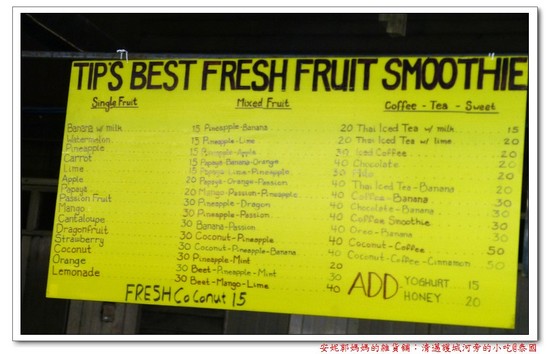 TIP'S BEST FRESH FRUIT SMOOTHIE
Single Fruit
Banana w/ milk 15
Watermelon 15
Pineapple 15
Carrot 15
Lime 15
Apple 20
Papaya 20
Passion Fruit 30
Mango 30
Cantaloupe 30
Dragonfruit 30
Strawberry 30
Coconut 30
Orange 30
Lemonade 30
FRESH CoConut 15
Mixed Fruit
Pineapple-Banana 20
Pineapple-Lime 20
Pineapple-Apple 30
Papaya-Banana-Orange 40
Papaya-Lime-Pineapple 30
Papaya-Orange-Passion 40
Mango-Passion-Pineapple 40
Pineapple-Dragon 40
Pineapple-Passion 40
Banana-Passion 40
Coconut-Pineapple 40
Coconut-Pineapple-Banana 40
Pineapple-Mint 20
Beet-Pineapple-Mint 30
Beet-Mango-Lime 40
Coffee - Tea - Sweet
Thai Iced Tea w/ milk 15
Thai Iced Tea w/ lime 20
Iced Coffee 20
Chocolate 20
Thai Iced Tea-Banana 20
Coffee-Banana 30
Chocolate-Banana 30
Coffee Smoothie 30
Oreo-Banana 30
Coconut-Coffee 50
Coconut-Coffee-Cinnamon 50
ADD - YOGHURT 15
HONEY 20
安妮郭媽媽的雜貨鋪：清邁護城河旁的小吃@泰國